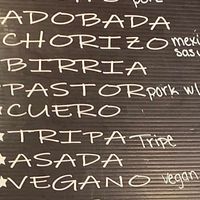 ADOBADA
CHORIZO mexi
BIRRIA
PASTOR pork w/
CUERO
TRIPA Tripe
ASADA
VEGANO vegan